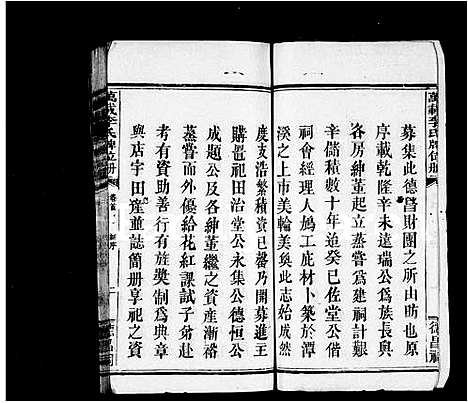 萬載李氏牌位册
募集此德昌財團之所由昉也原
序載乾隆辛未達瑞公為族長與
各房紳董起立蒸嘗為建祠計艱
辛儲積數十年迨癸巳佐堂公偕
祠會經理人鳩工庇材卜築於潭
溪之上市美輪美奐此志始成然
度支浩繁積資已罄乃開募進主
購置祀田治堂公永集公德恒公
成題公及各紳董繼之資產漸裕
蒸嘗而外優給花紅課試子弟赴
考有資助善行有獎勵製為典章
與店宇田產並誌簡册享祀之資
萬載李氏牌位册